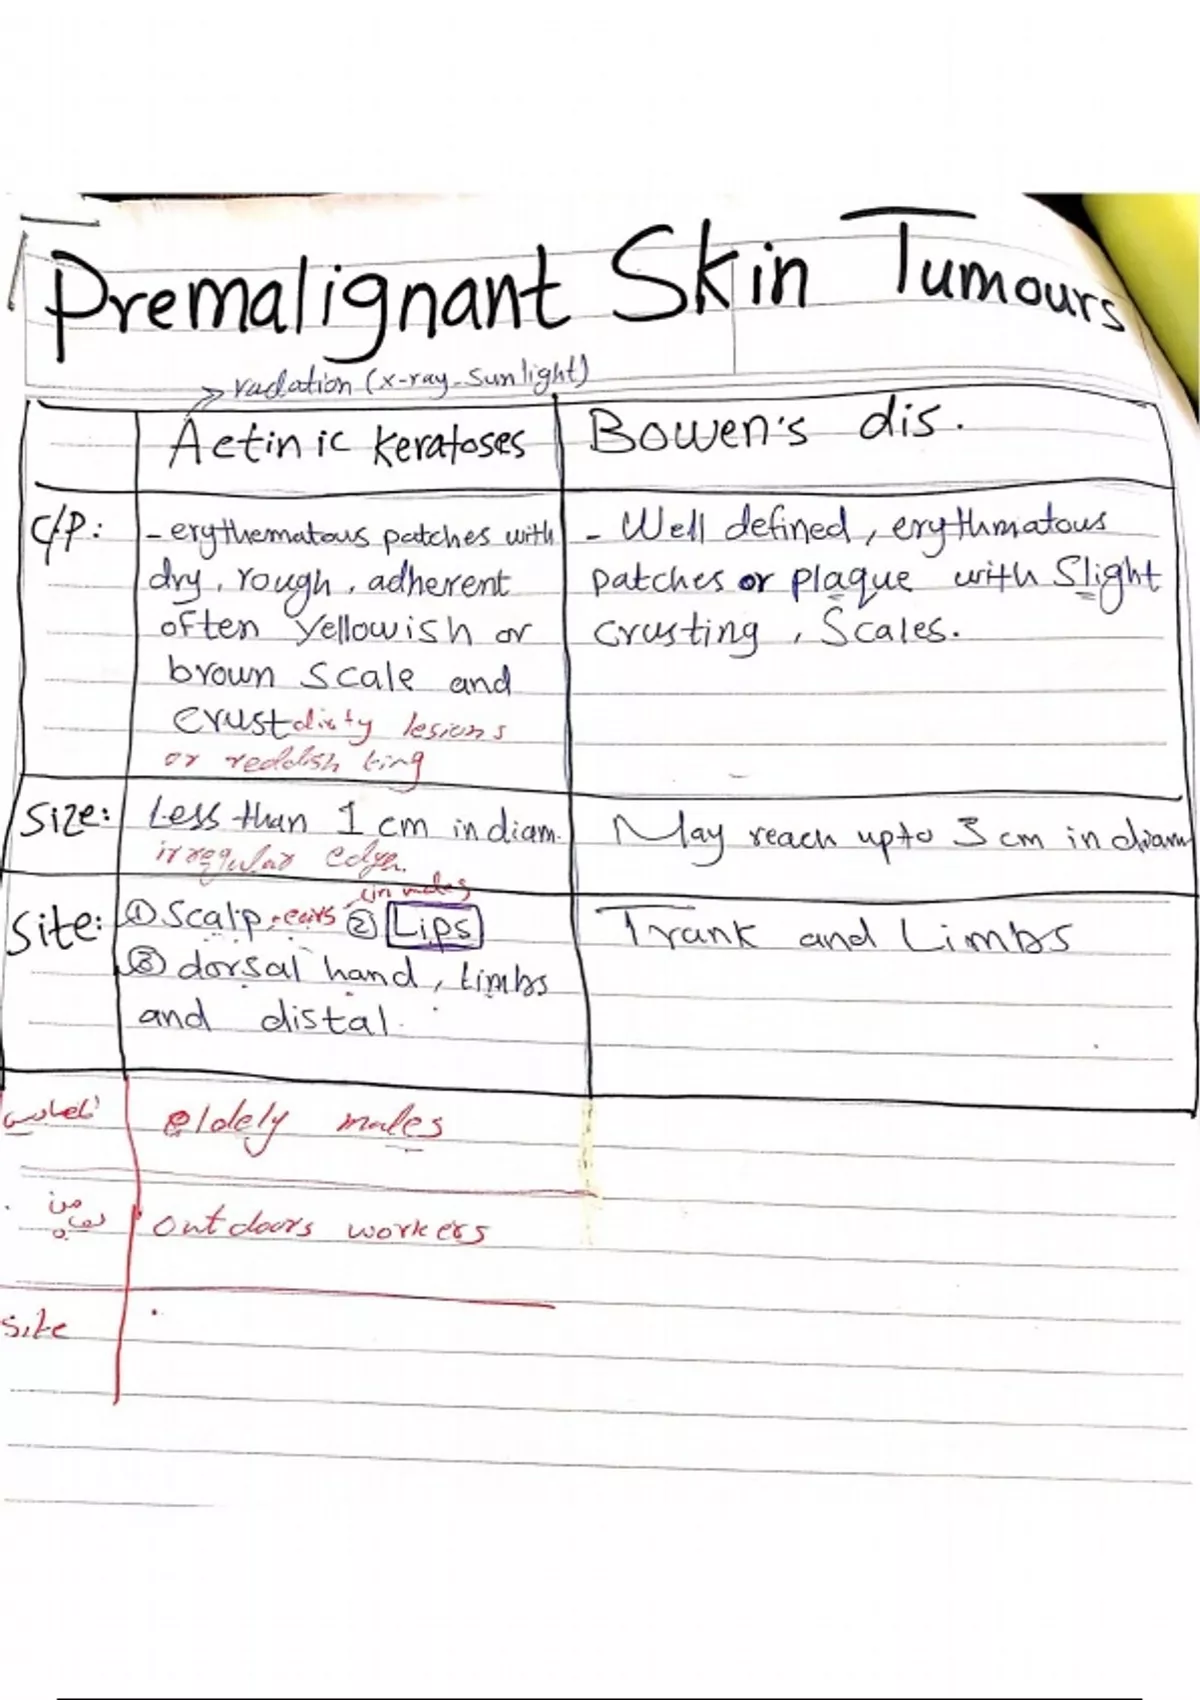 Premalignant Skin Tumours
radation (x-ray - Sun light)
Actinic Keratoses
Bowen's dis.
C/P:
- erythematous patches with
dry, rough, adherent
often yellowish or
brown scale and
crust dirty lesions
or reddish ting
- Well defined, erythmatous
patches or plaque with Slight
crusting, Scales.
Size:
Less than 1 cm in diam.
irregular edge.
May reach upto 3 cm in diam
Site:
(in males
① Scalp, ears ② Lips
③ dorsal hand, limbs
and distal.
Trunk and Limbs
eldely males
outdoors workers
site